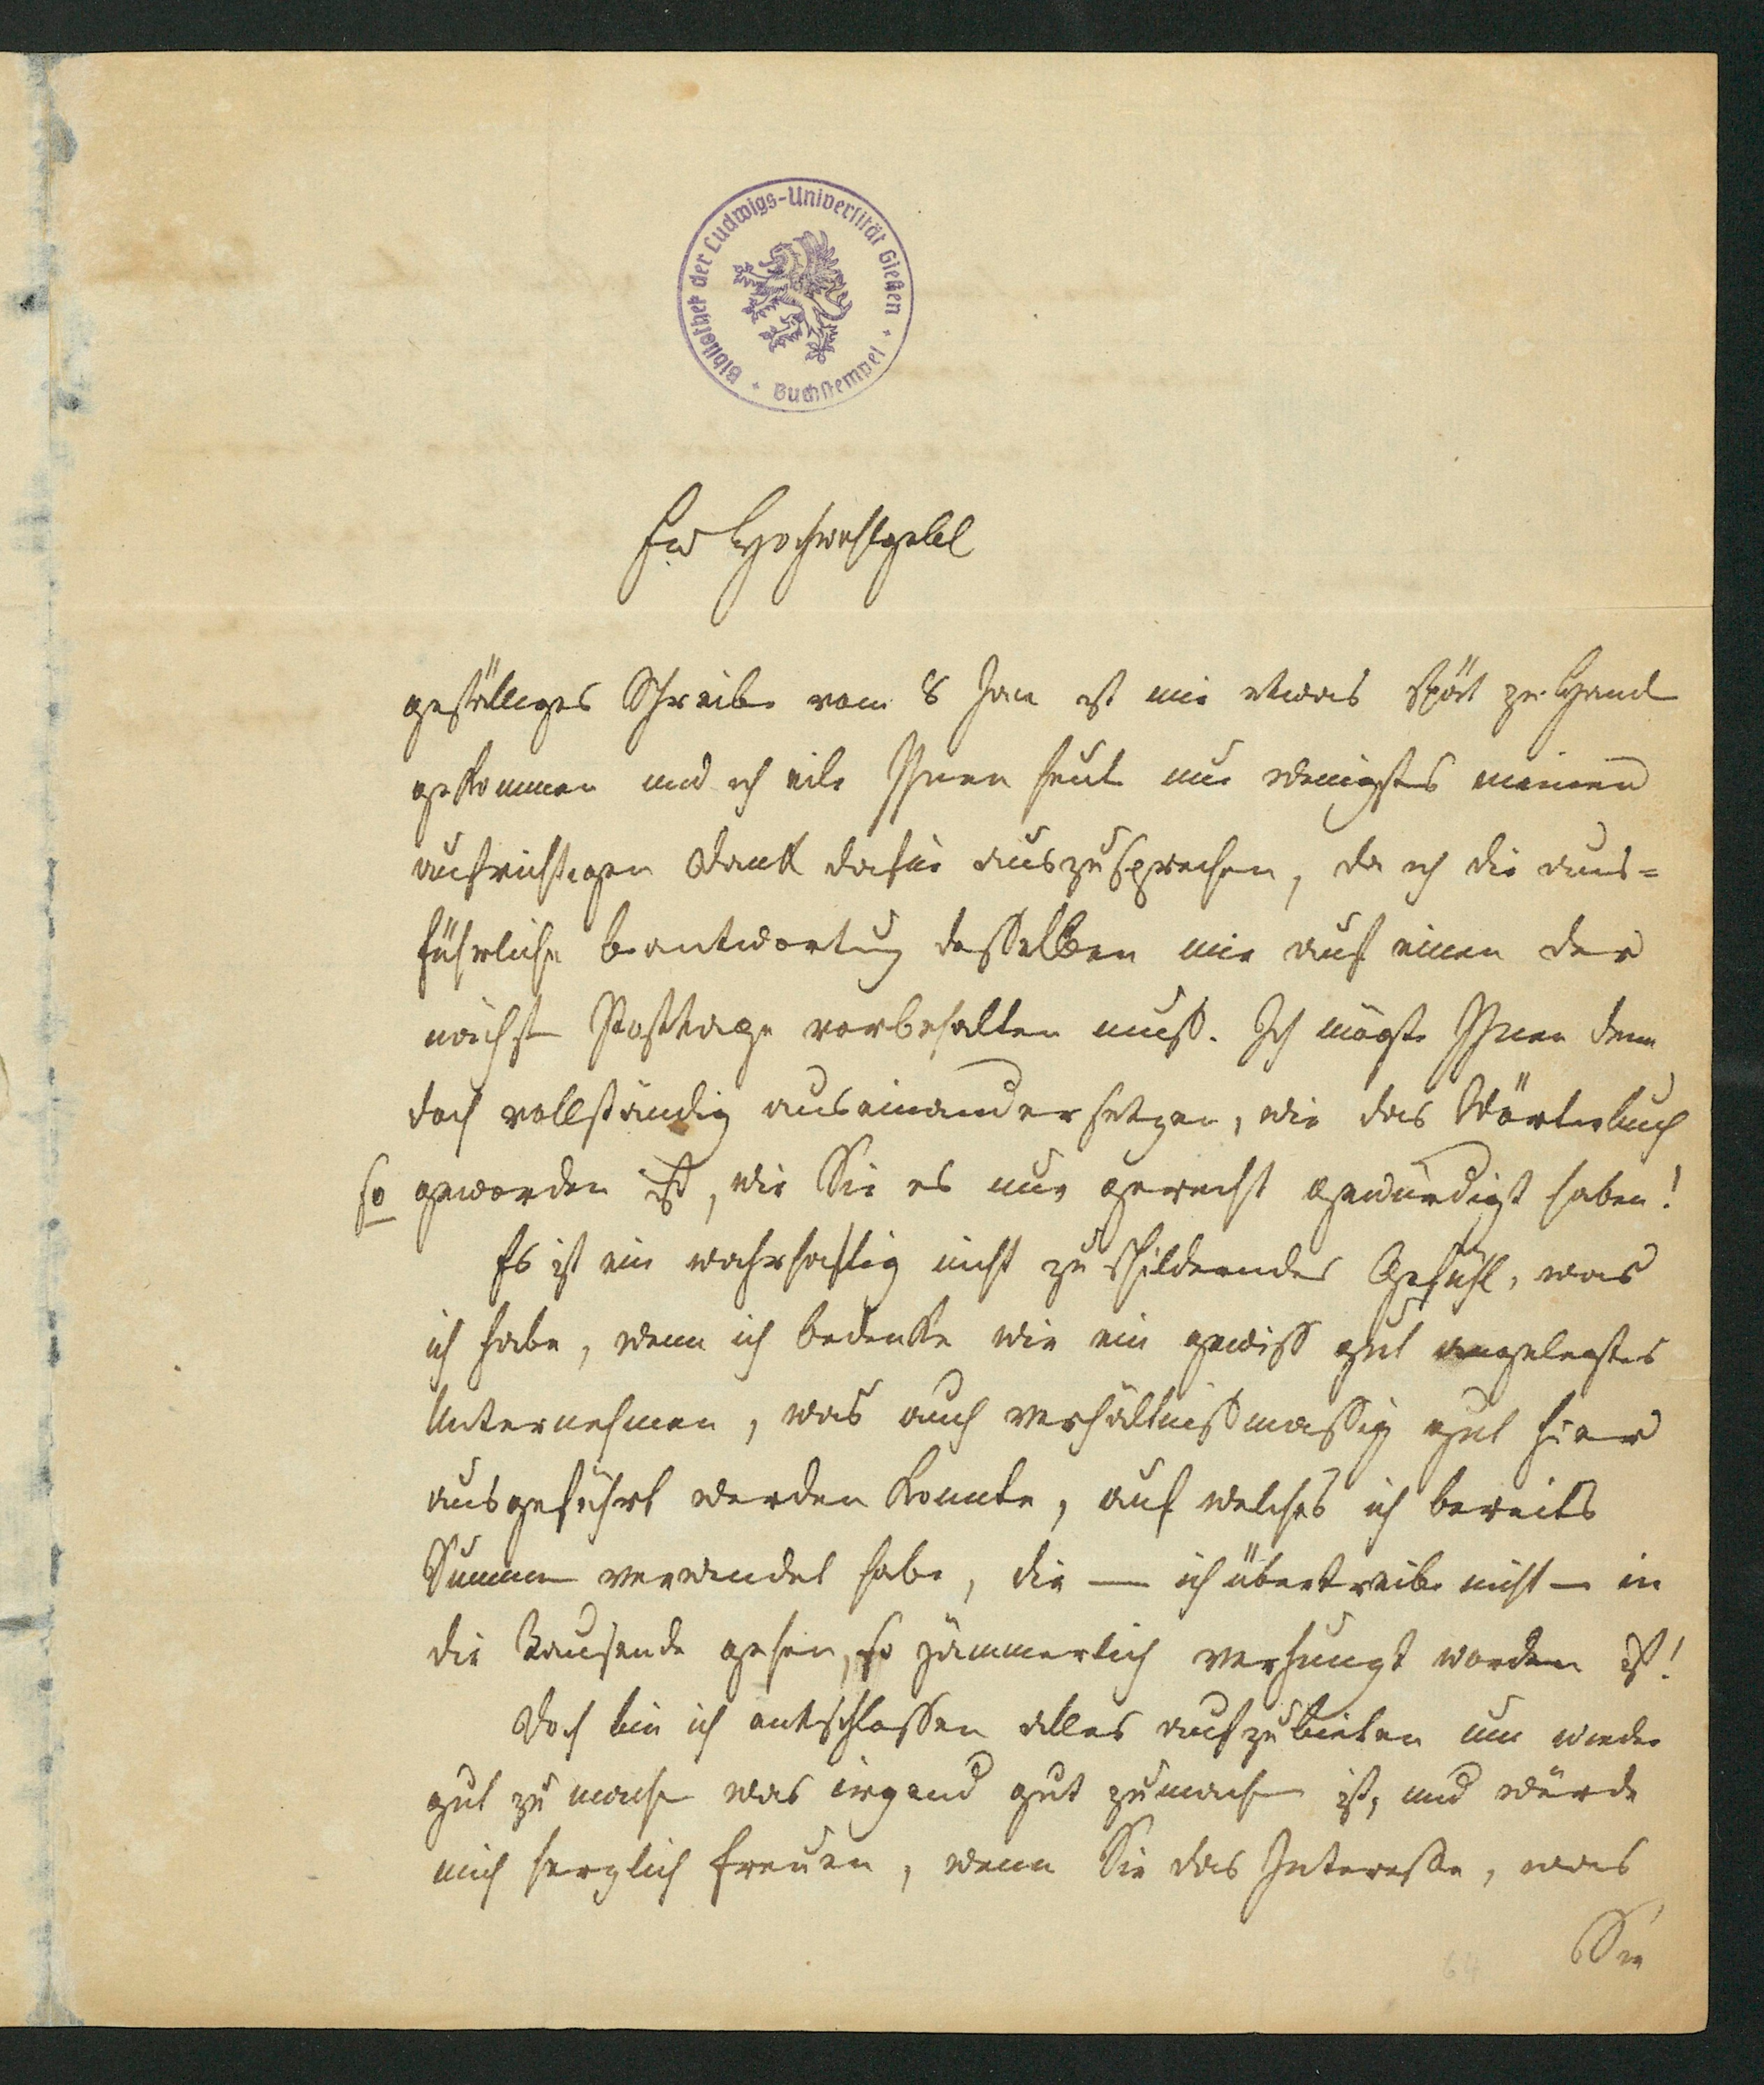 Bibliothek der Ludwigs-Universität Gießen
* Buchstempel *
Ew Hochwohlgebl
gefälliges Schreiben vom 8 Jan ist mir etwas spät zu Hand
gekommen und ich eile Ihnen heute nur wenigstens meinen
aufrichtigen Dank dafür auszusprechen, da ich die aus=
führliche Beantwortung desselben mir auf einen der
nächsten Posttage vorbehalten muß. Ich mögte Ihnen denn
doch vollständig auseinandersetzen, wie das Wörterbuch
so geworden ist, wie Sie es nur gerecht gewürdigt haben!
Es ist ein wahrhaftig nicht zu schilderndes Gefühl, was
ich habe, wenn ich bedenke wie ein gewiss gut angelegtes
Unternehmen, was auch verhältnißmassig gut hier
ausgeführt werden konnte, auf welches ich bereits
Summen verwendet habe, die — ich übertreibe nicht — in
die Tausende gehen, so jämmerlich verhunzt worden ist!
Doch bin ich entschlossen alles aufzubieten um wieder
gut zu machen was irgend gut zumachen ist, und würde
mich herzlich freuen, wenn Sie das Interesse, was
Sie
64